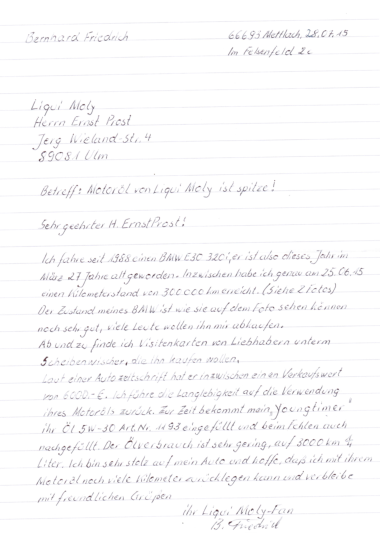 Bernhard Friedrich
66693 Mettlach, 28.07.15
Im Felsenfeld 2c
Liqui Moly
Herrn Ernst Prost
Jerg Wieland-Str. 4
89081 Ulm
Betreff: Motoröl von Liqui Moly ist spitze!
Sehr geehrter H. Ernst Prost!
Ich fahre seit 1988 einen BMW E30 320i, er ist also dieses Jahr im
März 27 Jahre alt geworden. Inzwischen habe ich genau am 25.06.15
einen Kilometerstand von 300000 km erreicht. (Siehe 2 Fotos)
Der Zustand meines BMW ist wie sie auf dem Foto sehen können
noch sehr gut, viele Leute wollen ihn mir abkaufen.
Ab und zu finde ich Visitenkarten von Liebhabern unterm
Scheibenwischer, die ihn kaufen wollen.
Laut einer Autozeitschrift hat er inzwischen einen Verkaufswert
von 6000.-€. Ich führe die Langlebigkeit auf die Verwendung
ihres Motoröls zurück. Zur Zeit bekommt mein "Youngtimer"
ihr Öl 5W-30 Art. Nr. 1193 eingefüllt und beim fehlen auch
nachgefüllt. Der Ölverbrauch ist sehr gering, auf 3000 km
Liter. Ich bin sehr stolz auf mein Auto und hoffe, daß ich mit ihrem
Motoröl noch viele Kilometer zurücklegen kann und verbleibe
mit freundlichen Grüßen
ihr Liqui Moly-Fan
B. Friedrich